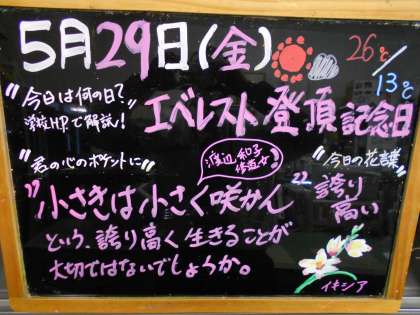 5月29日(金)
26℃/13℃
"今日は何の日?"
学校HPで解説!
エベレスト登頂記念日
"君の心のポケットに"
渡辺和子修道女
"今日の花言葉"
"小さきは小さく咲かん
という、誇り高く生きることが
大切ではないでしょうか。
誇り高い
イキシア